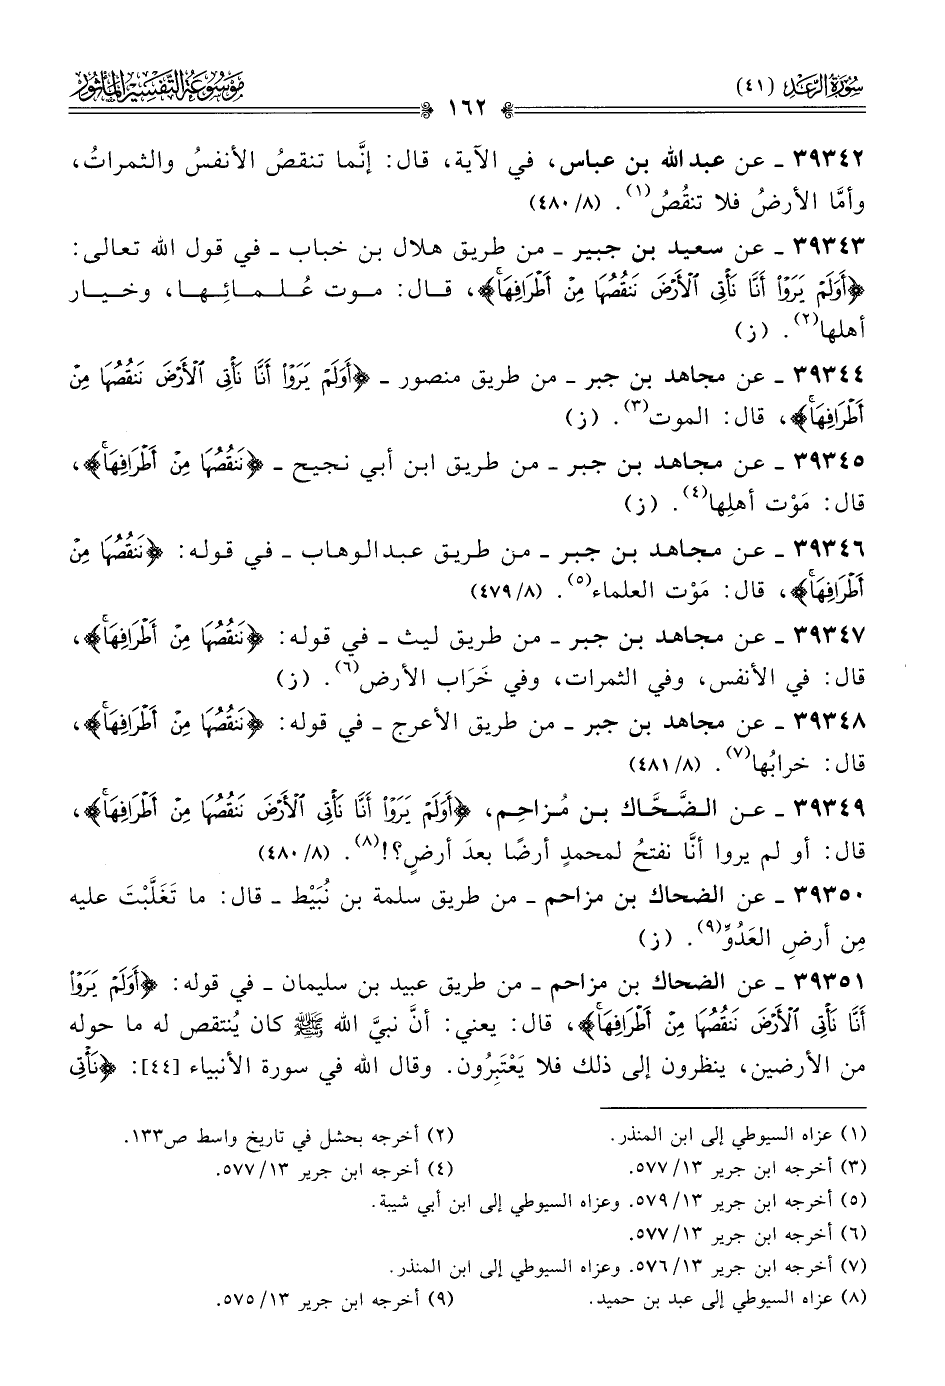 سُورَةُ الرَّعْدِ (٤١)
١٦٢
مَوْسُوعَةُ التَّفْسِيرِ المَأْثُورِ
٣٩٣٤٢ ـ عن عبد الله بن عباس، في الآية، قال: إنَّما تنقصُ الأنفسُ والثمراتُ،
وأمَّا الأرضُ فلا تنقُصُ(١). (٨/ ٤٨٠)
٣٩٣٤٣ ـ عن سعيد بن جبير ـ من طريق هلال بن خباب ـ في قول الله تعالى:
﴿أَوَلَمْ يَرَوْا۟ أَنَّا نَأْتِى ٱلْأَرْضَ نَنقُصُهَا مِنْ أَطْرَافِهَاۚ﴾، قال: موت عُلمائِها، وخيار
أهلها(٢). (ز)
٣٩٣٤٤ ـ عن مجاهد بن جبر ـ من طريق منصور ـ ﴿أَوَلَمْ يَرَوْا۟ أَنَّا نَأْتِى ٱلْأَرْضَ نَنقُصُهَا مِنْ
أَطْرَافِهَاۚ﴾، قال: الموت(٣). (ز)
٣٩٣٤٥ ـ عن مجاهد بن جبر ـ من طريق ابن أبي نجيح ـ ﴿نَنقُصُهَا مِنْ أَطْرَافِهَاۚ﴾،
قال: مَوْت أهلِها(٤). (ز)
٣٩٣٤٦ ـ عن مجاهد بن جبر ـ من طريق عبدالوهاب ـ في قوله: ﴿نَنقُصُهَا مِنْ
أَطْرَافِهَاۚ﴾، قال: مَوْت العلماء(٥). (٨/ ٤٧٩)
٣٩٣٤٧ ـ عن مجاهد بن جبر ـ من طريق ليث ـ في قوله: ﴿نَنقُصُهَا مِنْ أَطْرَافِهَاۚ﴾،
قال: في الأنفس، وفي الثمرات، وفي خَرَاب الأرض(٦). (ز)
٣٩٣٤٨ ـ عن مجاهد بن جبر ـ من طريق الأعرج ـ في قوله: ﴿نَنقُصُهَا مِنْ أَطْرَافِهَاۚ﴾،
قال: خرابُها(٧). (٨/ ٤٨١)
٣٩٣٤٩ ـ عن الضَّحَّاك بن مُزاحِم، ﴿أَوَلَمْ يَرَوْا۟ أَنَّا نَأْتِى ٱلْأَرْضَ نَنقُصُهَا مِنْ أَطْرَافِهَاۚ﴾،
قال: أو لم يروا أنَّا نفتحُ لمحمدٍ أرضًا بعدَ أرضٍ؟!(٨). (٨/ ٤٨٠)
٣٩٣٥٠ ـ عن الضحاك بن مزاحم ـ من طريق سلمة بن نُبَيْط ـ قال: ما تَغَلَّبْتَ عليه
مِن أرضِ العَدُوِّ(٩). (ز)
٣٩٣٥١ ـ عن الضحاك بن مزاحم ـ من طريق عبيد بن سليمان ـ في قوله: ﴿أَوَلَمْ يَرَوْا۟
أَنَّا نَأْتِى ٱلْأَرْضَ نَنقُصُهَا مِنْ أَطْرَافِهَاۚ﴾، قال: يعني: أنَّ نبيَّ الله ﷺ كان يُنتقص له ما حوله
من الأرضين، ينظرون إلى ذلك فلا يَعْتَبِرُون. وقال الله في سورة الأنبياء [٤٤]: ﴿نَأْتِى
(١) عزاه السيوطي إلى ابن المنذر.
(٢) أخرجه بحشل في تاريخ واسط ص١٣٣.
(٣) أخرجه ابن جرير ١٣/ ٥٧٧.
(٤) أخرجه ابن جرير ١٣/ ٥٧٧.
(٥) أخرجه ابن جرير ١٣/ ٥٧٩. وعزاه السيوطي إلى ابن أبي شيبة.
(٦) أخرجه ابن جرير ١٣/ ٥٧٧.
(٧) أخرجه ابن جرير ١٣/ ٥٧٦. وعزاه السيوطي إلى ابن المنذر.
(٨) عزاه السيوطي إلى عبد بن حميد.
(٩) أخرجه ابن جرير ١٣/ ٥٧٥.